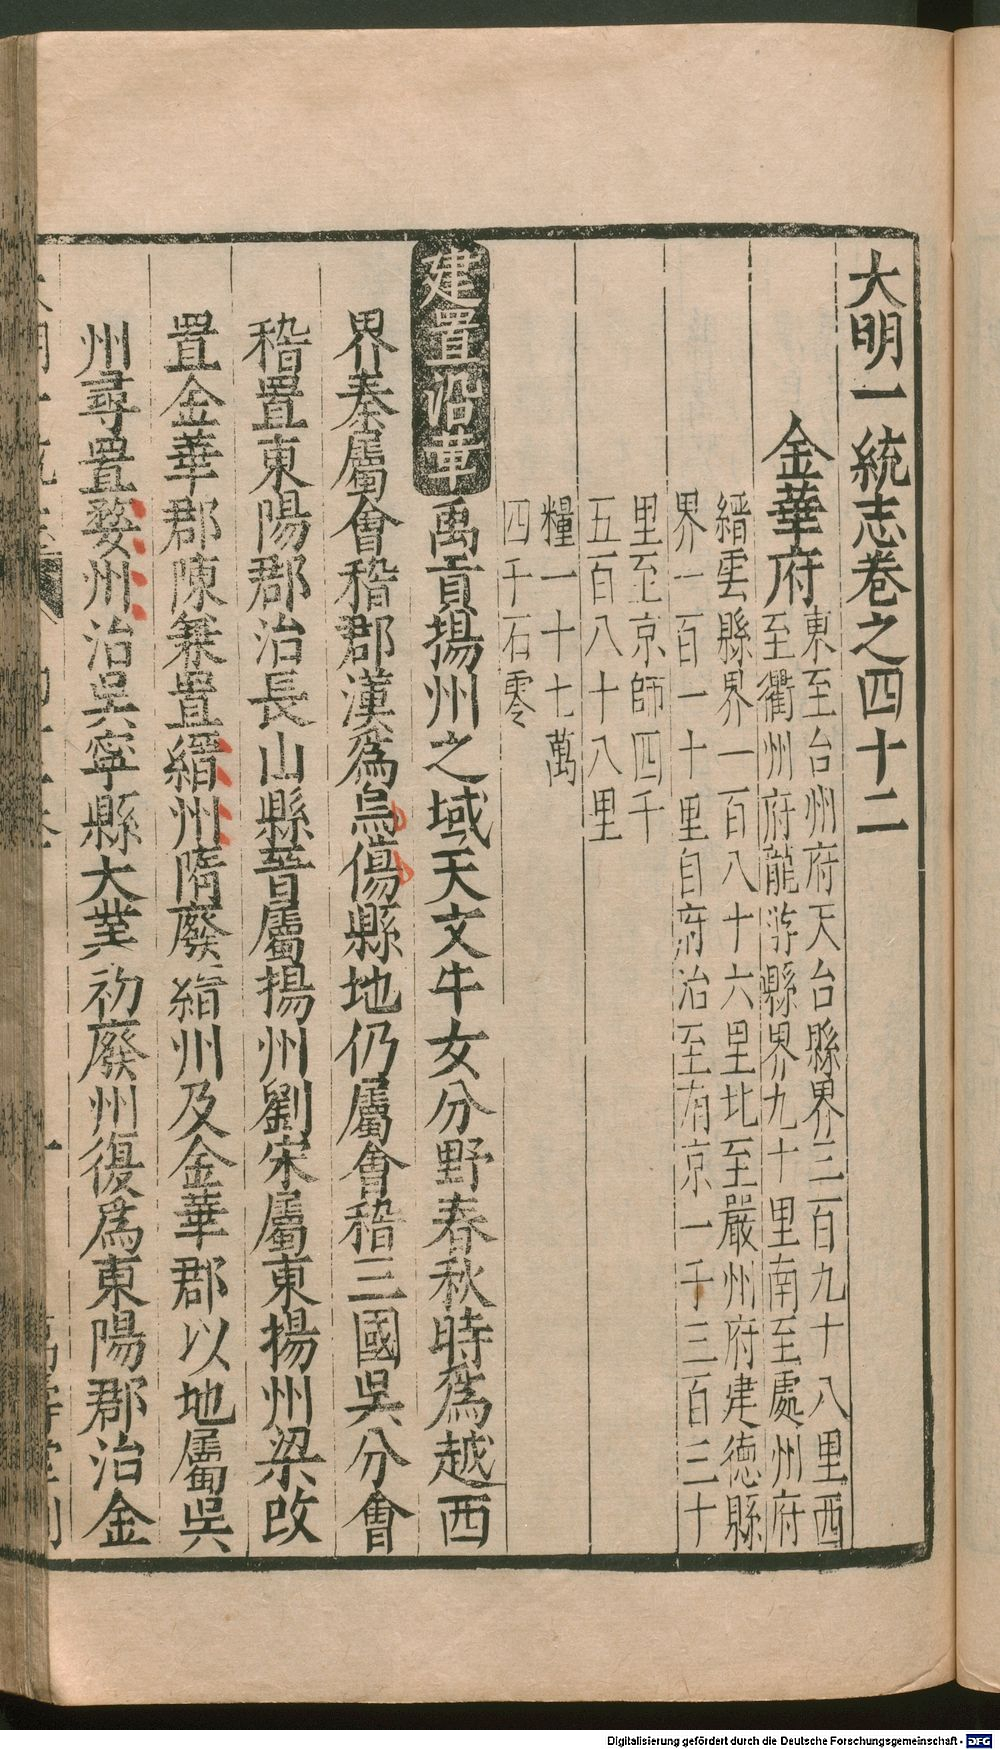 大明一統志卷之四十二
金華府
東至台州府天台縣界三百九十八里西
至衢州府龍游縣界九十里南至處州府
縉雲縣界一百八十六里北至嚴州府建德縣
界一百一十里自府治至南京一千三百三十
里至京師四千
五百八十八里
糧一十七萬
四千石零
建置沿革禹貢揚州之域天文牛女分野春秋時爲越西
界秦屬會稽郡漢爲烏傷縣地仍屬會稽三國吳分會
稽置東陽郡治長山縣晉屬揚州劉宋屬東揚州梁改
置金華郡陳兼置縉州隋廢縉州及金華郡以地屬吳
州尋置婺州治吳寧縣大業初廢州復爲東陽郡治金
Digitalisierung gefördert durch die Deutsche Forschungsgemeinschaft - DFG